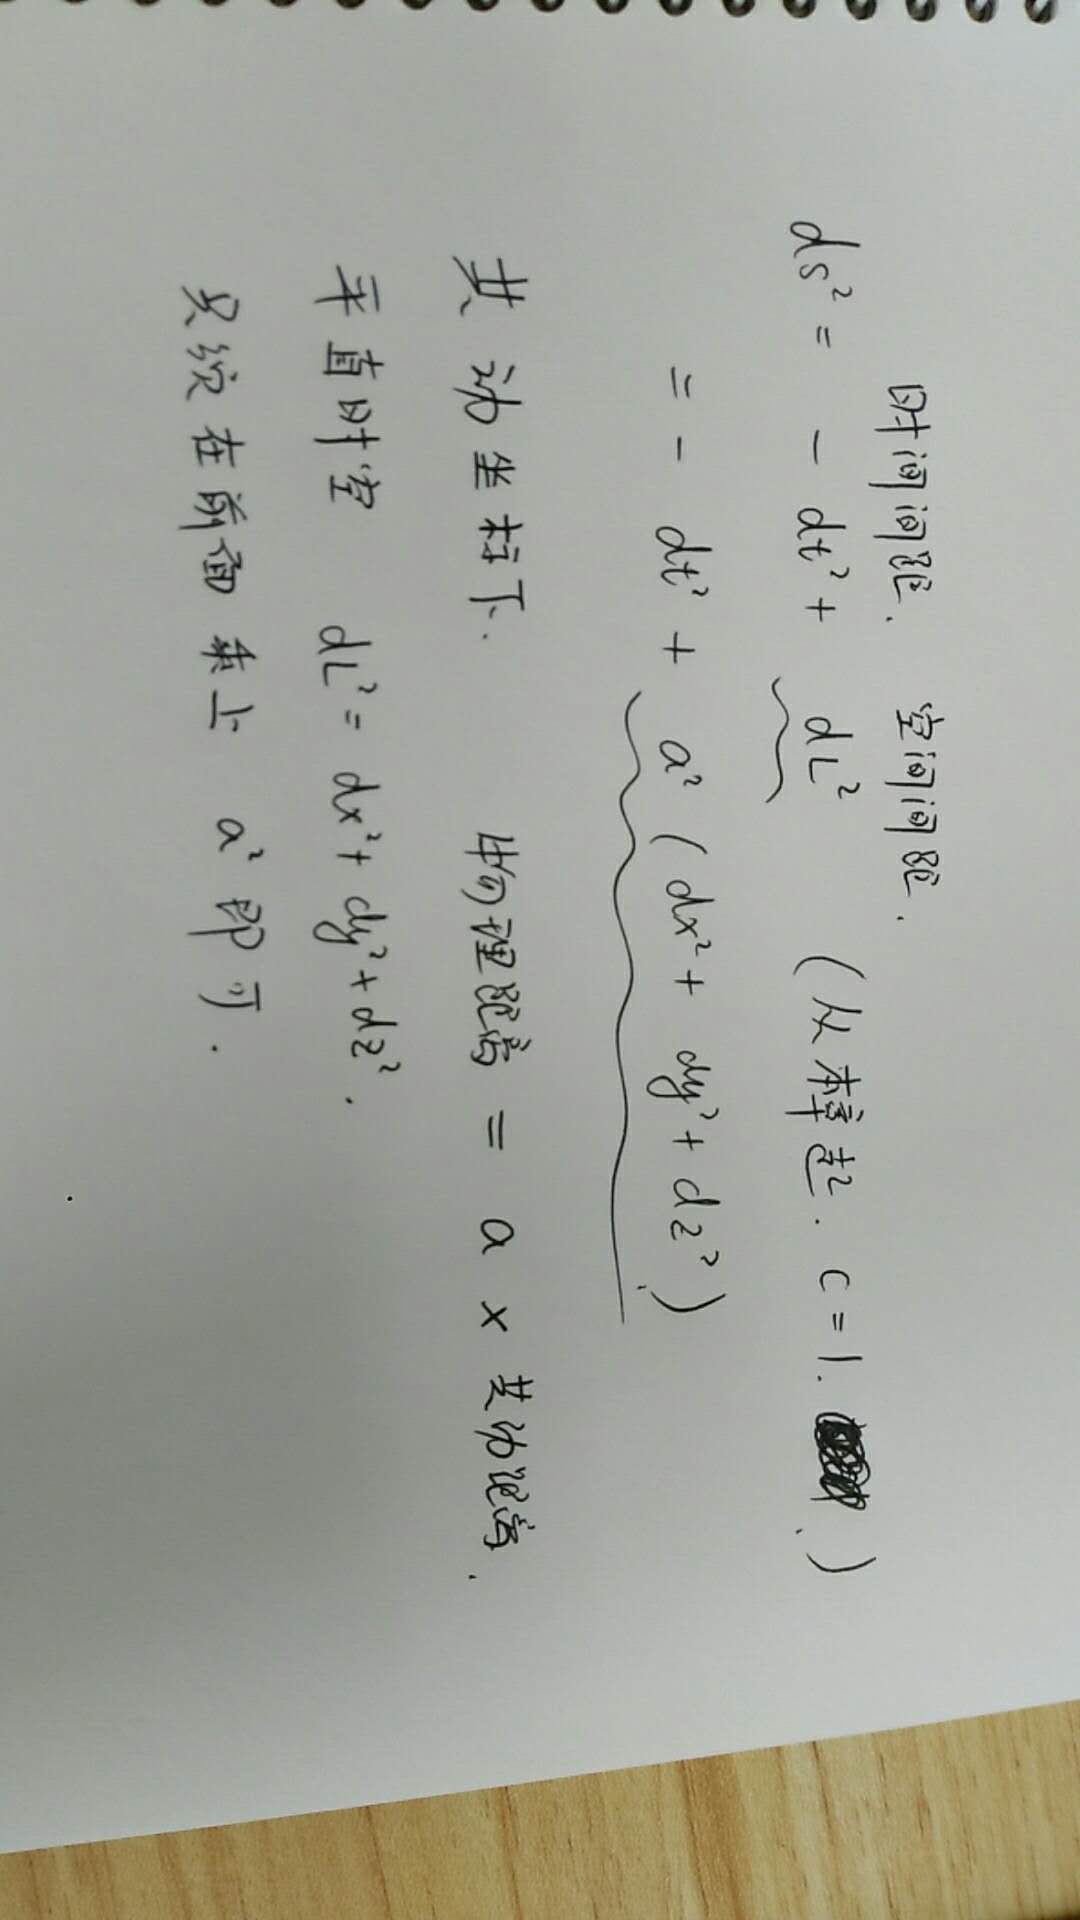 时间间距. 空间间距.
ds² = - dt² + dL² (从本章起. c=1. )
= - dt² + a² (dx² + dy² + dz²)
共动坐标下. 物理距离 = a × 共动距离.
平直时空 dL² = dx² + dy² + dz².
只须在前面乘上 a² 即可.